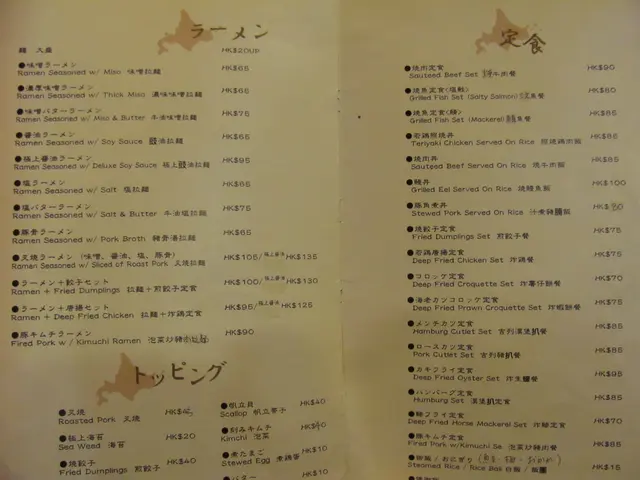 ラーメン
麺 大盛 HK$20UP
●味噌ラーメン HK$65
Ramen Seasoned w/ Miso 味噌拉麵
●濃厚味噌ラーメン HK$65
Ramen Seasoned w/ Thick Miso 濃味味噌拉麵
●味噌バターラーメン HK$75
Ramen Seasoned w/ Miso & Butter 牛油味噌拉麵
●醬油ラーメン HK$65
Ramen Seasoned w/ Soy Sauce 豉油拉麵
●極上醬油ラーメン HK$95
Ramen Seasoned w/ Deluxe Soy Sauce 極上豉油拉麵
●塩ラーメン HK$65
Ramen Seasoned w/ Salt 塩拉麵
●塩バターラーメン HK$75
Ramen Seasoned w/ Salt & Butter 牛油塩拉麵
●豚骨ラーメン HK$65
Ramen Seasoned w/ Pork Broth 豬骨湯拉麵
●叉焼ラーメン (味噌、醬油、塩、豚骨) HK$105/極上醬油HK$135
Ramen Seasoned w/ Sliced of Roast Pork 叉燒拉麵
●ラーメン+餃子セット HK$100/極上醬油HK$130
Ramen + Fired Dumplings 拉麵+煎餃子定食
●ラーメン+唐揚セット HK$95/極上醬油HK$125
Ramen + Deep Fried Chicken 拉麵+炸鷄定食
●豚キムチラーメン HK$90
Fired Pork w/ Kimuchi Ramen 泡菜炒豬肉拉麵
トッピング
●叉焼
Roasted Pork 叉燒
●極上海苔 HK$20
Sea Weed 海苔
●焼餃子 HK$40
Fried Dumplings 煎餃子
●帆立貝 HK$40
Scallop 帆立帶子
●刻みキムチ
Kimchi 泡菜
●煮たまご HK$10
Stewed Egg 煮鷄蛋
●バター HK$10
定食
●焼肉定食 HK$90
Sauteed Beef Set 燒牛肉餐
●焼魚定食(塩鮭) HK$80
Grilled Fish Set (Salty Salmon) 魚餐
●焼魚定食(鯖) HK$85
Grilled Fish Set (Mackerel) 魚餐
●若鷄照焼丼 HK$85
Teriyaki Chicken Served On Rice 照燒鷄肉飯
●焼肉丼 HK$85
Sauteed Beef Served On Rice 燒牛肉飯
●鰻丼 HK$100
Grilled Eel Served On Rice 燒鰻魚飯
●豚角煮丼
Stewed Pork Served On Rice 汁煮豬腩飯
●焼餃子定食 HK$75
Fried Dumplings Set 煎餃子餐
●若鷄唐揚定食 HK$75
Deep Fried Chicken Set 炸鷄餐
●コロッケ定食 HK$70
Deep Fried Croquette Set 炸薯仔餅餐
●海老カツコロッケ定食 HK$75
Deep Fried Prawn Croquette Set 炸蝦餅餐
●メンチカツ定食 HK$85
Hamburg Cutlet Set 吉列漢堡扒餐
●ロースカツ定食 HK$85
Pork Cutlet Set 吉列豬扒餐
●カキフライ定食 HK$95
Deep Fried Oyster Set 炸生蠔餐
●ハンバーグ定食 HK$85
Hamburg Set 漢堡扒定食
●鯵フライ定食 HK$70
Deep Fried Horse Mackerel Set 炸鯵定食
●豚キムチ定食 HK$85
Fired Pork w/Kimuchi Se. 泡菜炒豬肉餐
●御飯/おにぎり HK$15
Steamed Rice / Rice Ball 白飯/飯團